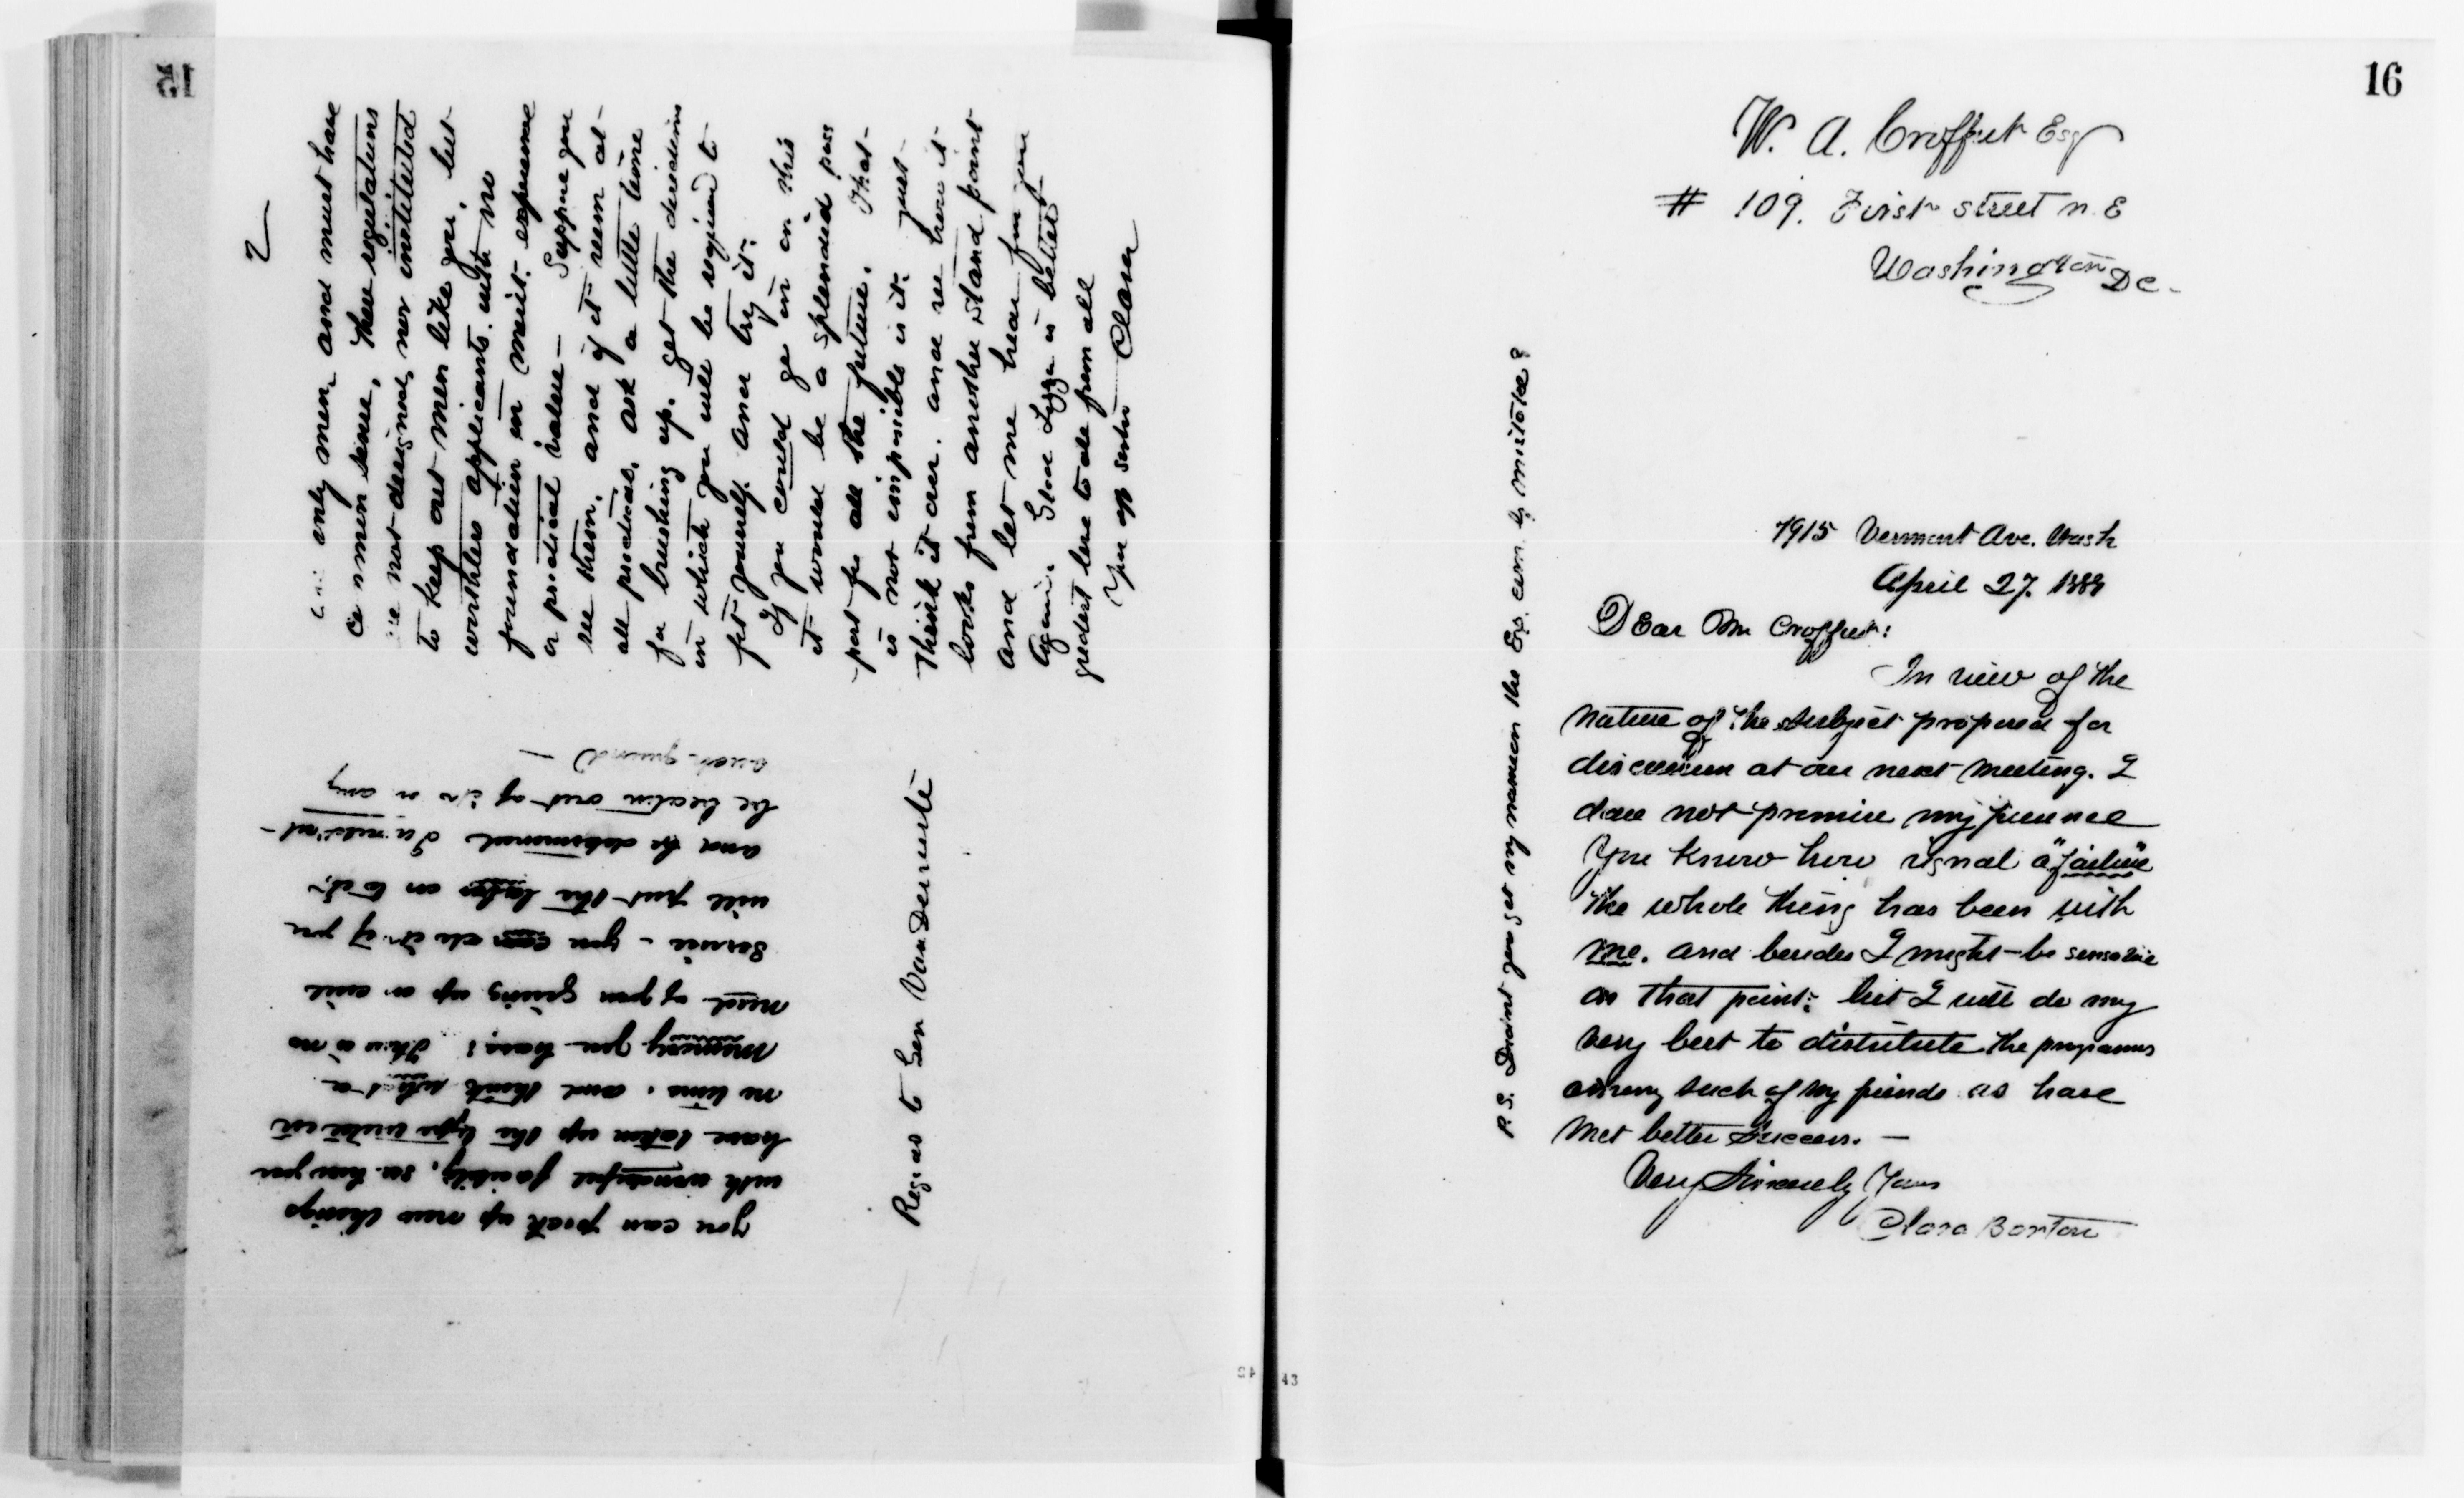 15
2
only men and must have
common sense, these regulations
are not designed, nor instituted
to keep out men like you, but
worthless applicants with no
foundation in merit experience
or practical value — Suppose you
see them, and if it seem at
all practical, ask a little time
for brushing up, get the directions
in which you will be required to
fit yourself, and try it.
If you could go in on this
it would be a splendid pass
port for all the future. That
is not impossible is it. just
think it over. and see how it
looks from another stand point
and let me hear from you
again. Steve Lizzie is better
greatest love to all from all
Your aff sister Clara
You can pick up new things
with wonderful facility, see how you
have taken up the type writer in
no time, and think what a
memory you have; This is no
need of your giving up a civil
service – you can do it if you
will put the lights on to it,
and be determined I resist
be beaten out of it on any
such ground —
Regias to Gen Van Derveute
16
W. A. Croffut Esq
# 109. First street N. E
Washington DC.
1915 Vermont Ave. Wash
April 27. 1889
Dear Mr Croffut:
In view of the
nature of the subject proposed for
discussion at our next meeting. I
dare not promise my presence
You know how signal a "failure"
the whole thing has been with
me, and besides I might be sensative
on that point; but I will do my
very best to distribute the programs
among such of my friends as have
met better success. —
Very Sincerely Yours
Clara Barton
P.S. Didnt you get my name on the Ex. com. by mistake?
43
43